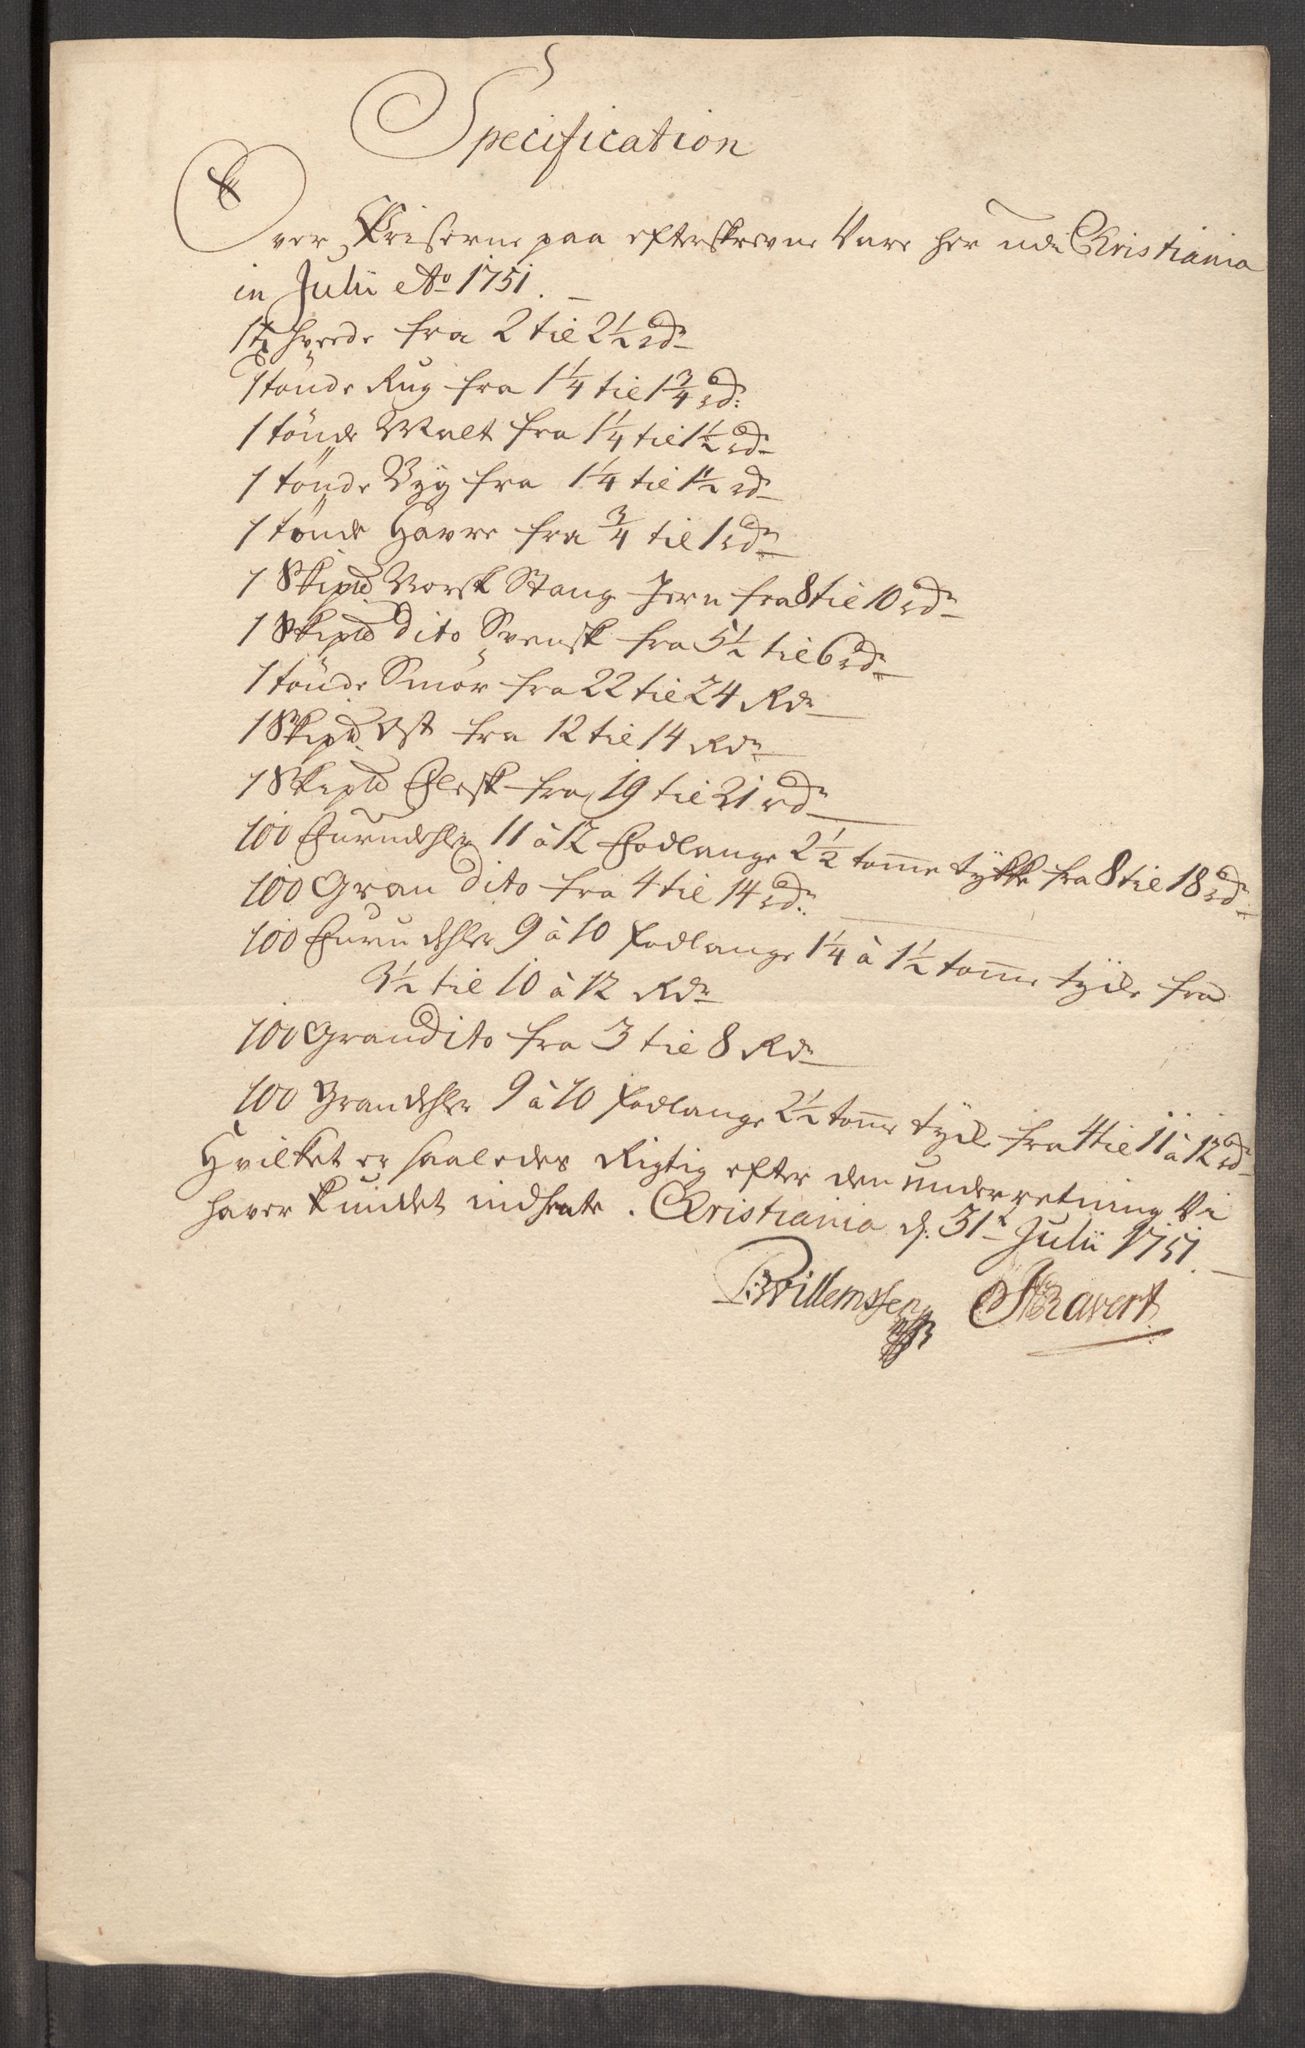 Specification
Over Priserne paa efterskrevne Vare her udi Christiania
in Julii Ao 1751.
1 td hvede fra 2 til 2½ rdr
1 tönde Rug fra 1¼ til 1¾ rd:
1 tönde Malt fra 1¼ til 1½ rdr
1 tönde Byg fra 1¼ til 1½ rdr
1 tönde Havre fra ¾ til 1 rdr
1 Skipd Norsk Stang Jern fra 8 til 10 rdr
1 Skipd dito Svensk fra 5½ til 6 rdr
1 tönde Smör fra 22 til 24 Rdr
1 Skipd. Ost fra 12 til 14 Rdr
1 Skipd Flesk fra 19 til 21 rdr
100 Furudehler 11 à 12 Fodlange 2½ tomme tykke fra 8 til 18 rdr
100 Gran dito fra 4 til 14 rdr.
100 Furu dehler 9 à 10 fodlange 1¼ à 1½ tomme tycke fra
3½ til 10 à 12 Rdr
100 Gran dito fra 3 til 8 Rdr
100 Grandehler 9 à 10 fodlange 2½ tomme tycke fra 4 til 11 à 12 rdr
Hvilket er saaledes Rigtig efter den underretning Vi
haver kundet indhente. Christiania d: 31te Julii 1751.
Willemssen Ravert